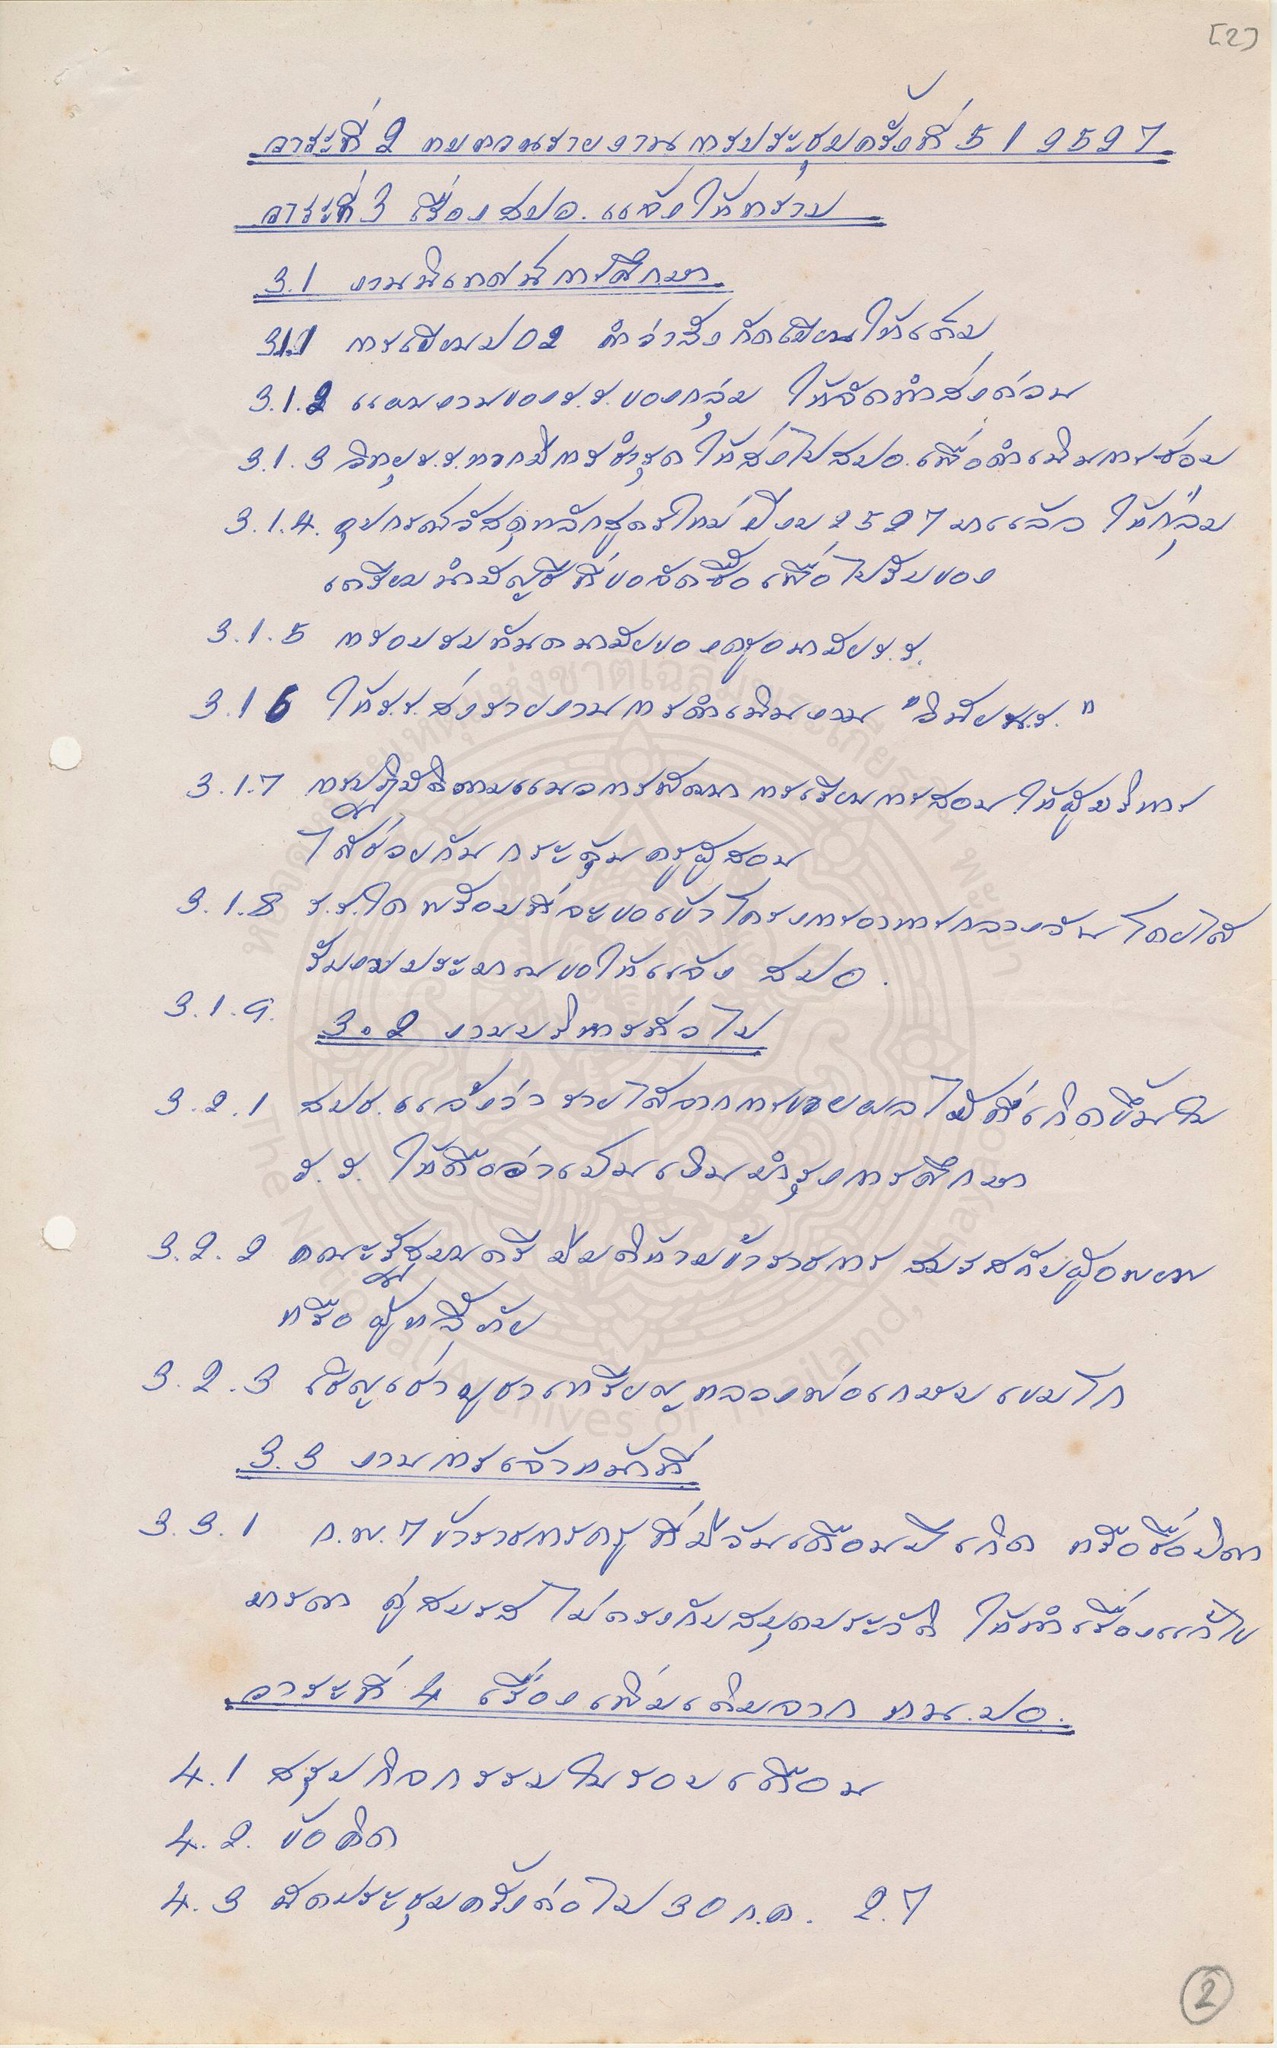 [2]
วาระที่ 2 ทบทวนรายงานการประชุมครั้งที่ 5 / 2527
วาระที่ 3 เรื่อง สปอ. แจ้งให้ทราบ
3.1 งานนิเทศน์การศึกษา
3.1.1 การเขียน ป02 คำว่าสังกัดเขียนให้เต็ม
3.1.2 แผนงานของ ร.ร. ของกลุ่ม ให้จัดทำส่งด่วน
3.1.3 วิทยุ ร.ร. หากมีการชำรุด ให้ส่งไป สปอ. เพื่อดำเนินการซ่อม
3.1.4. อุปกรณ์วัสดุหลักสูตรใหม่ ปีงบ 2527 มาแล้ว ให้กลุ่ม
เตรียมนำบัญชีที่ขอจัดซื้อเพื่อไปรับของ
3.1.5 การอบรมทันตนามัยของครูอนามัย ร.ร.
3.1 6 ให้ ร.ร. ส่งรายงานการดำเนินงาน "วินัย น.ร. "
3.1.7 การปฏิบัติตามแนวการพัฒนาการเรียนการสอน ให้ผู้บริหาร
ได้ช่วยกันกระตุ้นครูผู้สอน
3.1.8 ร.ร.ใด พร้อมที่จะขอเข้าโครงการอาหารกลางวัน โดยได้
รับงบประมาณขอให้แจ้ง สปอ.
3.1.9.
3.2 งานบริหารทั่วไป
3.2.1 สปช. แจ้งว่า รายได้จากการขายผลไม้ที่เกิดขึ้นใน
ร.ร. ให้ถือว่าเป็นเงินบำรุงการศึกษา
3.2.2 คณะรัฐมนตรี มีมติห้ามข้าราชการ สมรสกับผู้อพยพ
หรือ ผู้หลี้ภัย
3.2.3 เชิญเช่าบูชาเหรียญหลวงพ่อเกษม เขมโก
3.3 งานการเจ้าหน้าที่
3.3.1 ก.พ.7 ข้าราชการครู ที่มีวันเดือนปีเกิด หรือชื่อบิดา
มารดา คู่สมรส ไม่ตรงกับสมุดประวัติ ให้ทำเรื่องแก้ไข
วาระที่ 4 เรื่องเพิ่มเติมจาก หน.ปอ.
4.1 สรุปกิจกรรมในรอบเดือน
4.2. ข้อคิด
4.3 นัดประชุมครั้งต่อไป 30 ก.ค. 27
2
หอจดหมายเหตุแห่งชาติเฉลิมพระเกียรติฯ พะเยา
The National Archives of Thailand, Phayao